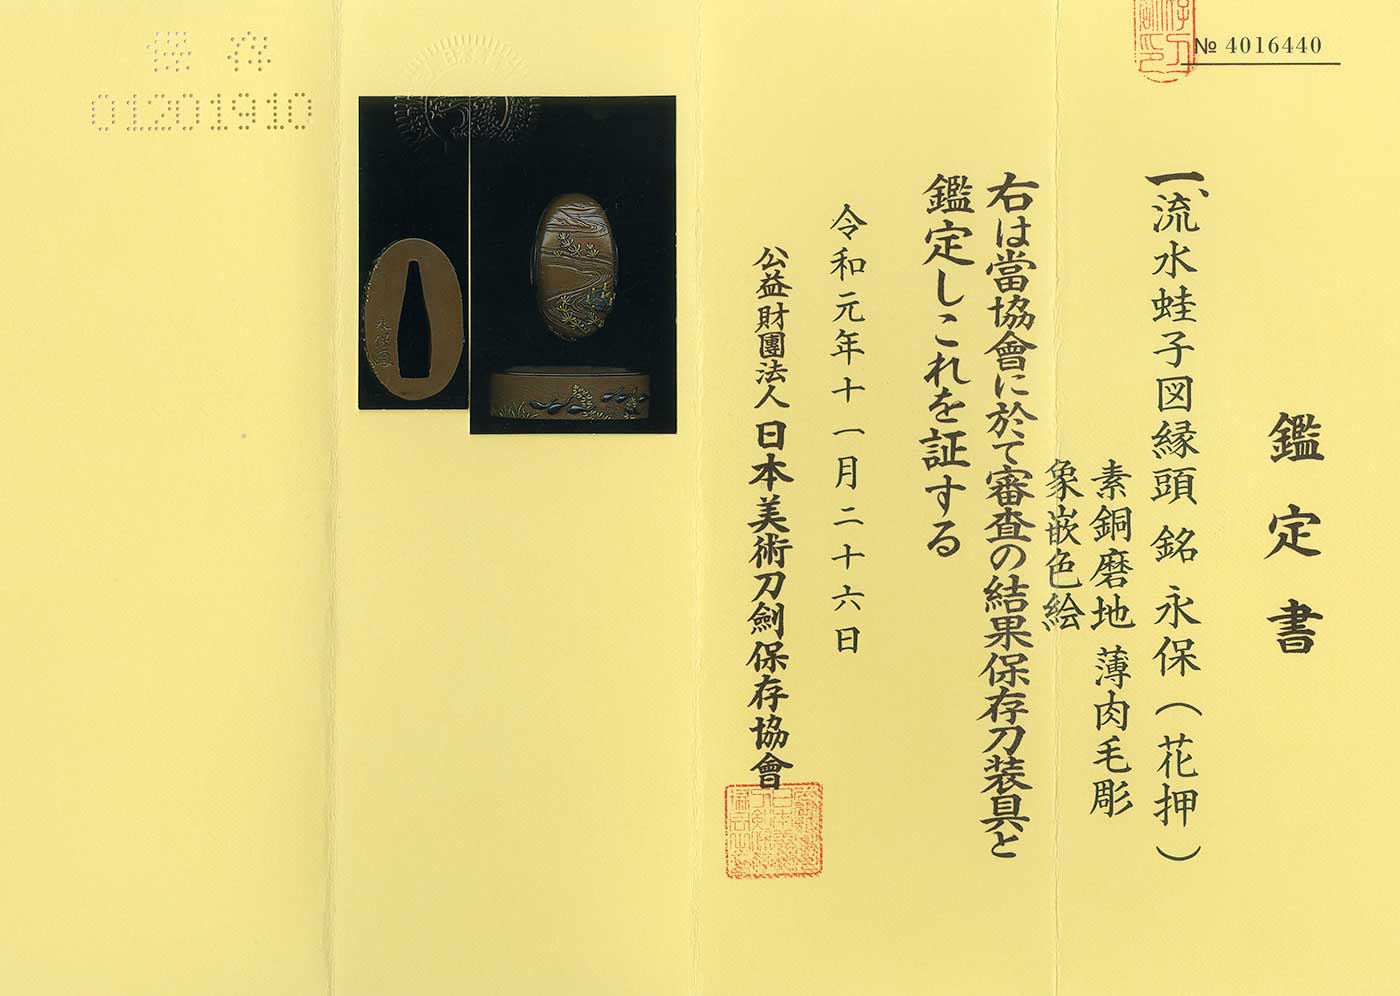 № 4016440
鑑定書
一、流水蛙子図縁頭 銘 永保(花押)
素銅磨地 薄肉毛彫
象嵌色絵
右は當協會に於て審査の結果保存刀装具と
鑑定しこれを証する
令和元年十一月二十六日
公益財團法人 日本美術刀劍保存協會
保存
01201910